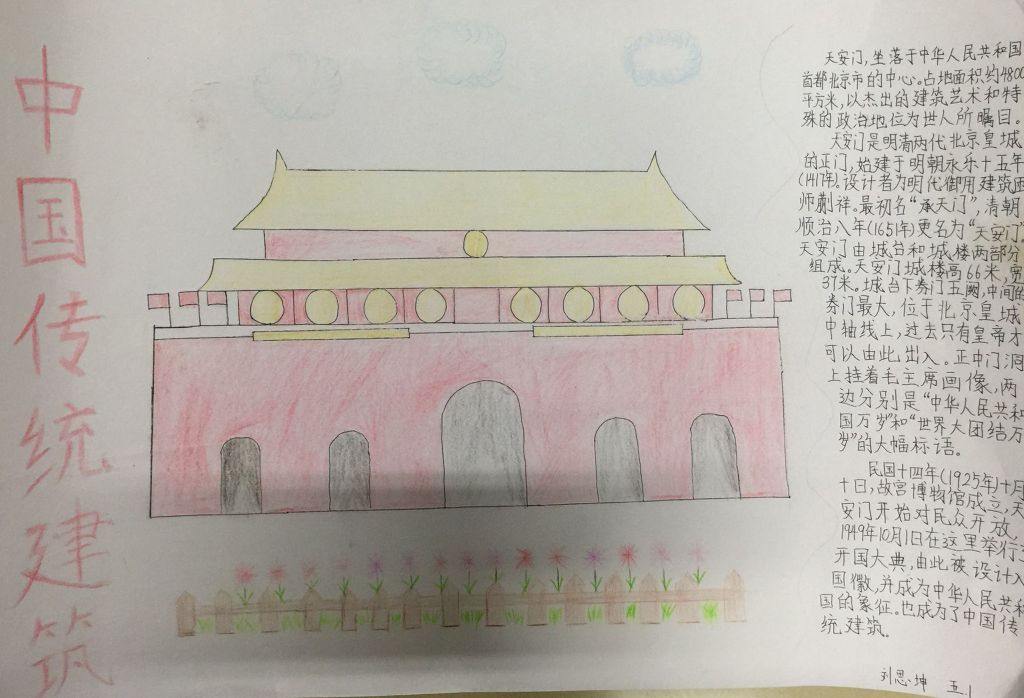 中国传统建筑
天安门,坐落于中华人民共和国
首都北京市的中心。占地面积约4800
平方米,以杰出的建筑艺术和特
殊的政治地位为世人所瞩目。
天安门是明清两代北京皇城
的正门,始建于明朝永乐十五年
(1417年)。设计者为明代御用建筑匠
师蒯祥。最初名“承天门”,清朝
顺治八年(1651年)更名为“天安门”。
天安门由城台和城楼两部分
组成。天安门城楼高66米,宽
37米。城台下券门五阙,中间的
券门最大,位于北京皇城
中轴线上,过去只有皇帝才
可以由此出入。正中门洞
上挂着毛主席画像,两
边分别是“中华人民共和
国万岁”和“世界大团结万
岁”的大幅标语。
民国十四年(1925年)十月
十日,故宫博物馆成立,天
安门开始对民众开放。
1949年10月1日在这里举行
开国大典,由此被设计入
国徽,并成为中华人民共和
国的象征。也成为了中国传
统建筑。
刘思坤 五.1